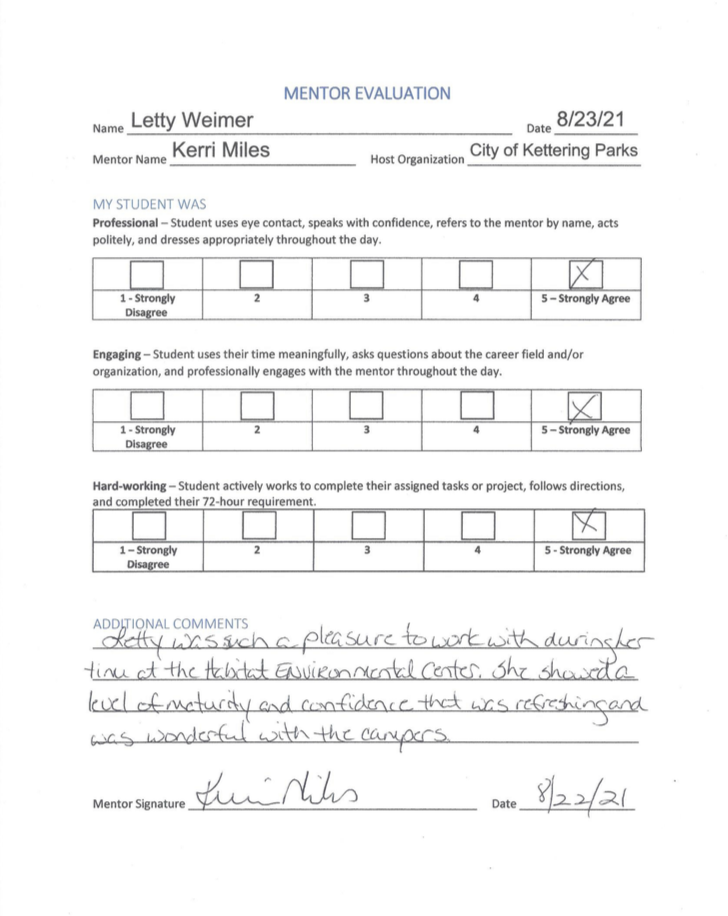 MENTOR EVALUATION
Name Letty Weimer Date 8/23/21
Mentor Name Kerri Miles Host Organization City of Kettering Parks
MY STUDENT WAS
Professional – Student uses eye contact, speaks with confidence, refers to the mentor by name, acts
politely, and dresses appropriately throughout the day.
1 - Strongly Disagree 2 3 4 5 – Strongly Agree
Engaging – Student uses their time meaningfully, asks questions about the career field and/or
organization, and professionally engages with the mentor throughout the day.
1 - Strongly Disagree 2 3 4 5 – Strongly Agree
Hard-working – Student actively works to complete their assigned tasks or project, follows directions,
and completed their 72-hour requirement.
1 – Strongly Disagree 2 3 4 5 - Strongly Agree
ADDITIONAL COMMENTS
Letty was such a pleasure to work with during her
time at the Habitat Environmental Center. She showed a
level of maturity and confidence that was refreshing and
was wonderful with the campers.
Mentor Signature Kerri Miles Date 8/22/21